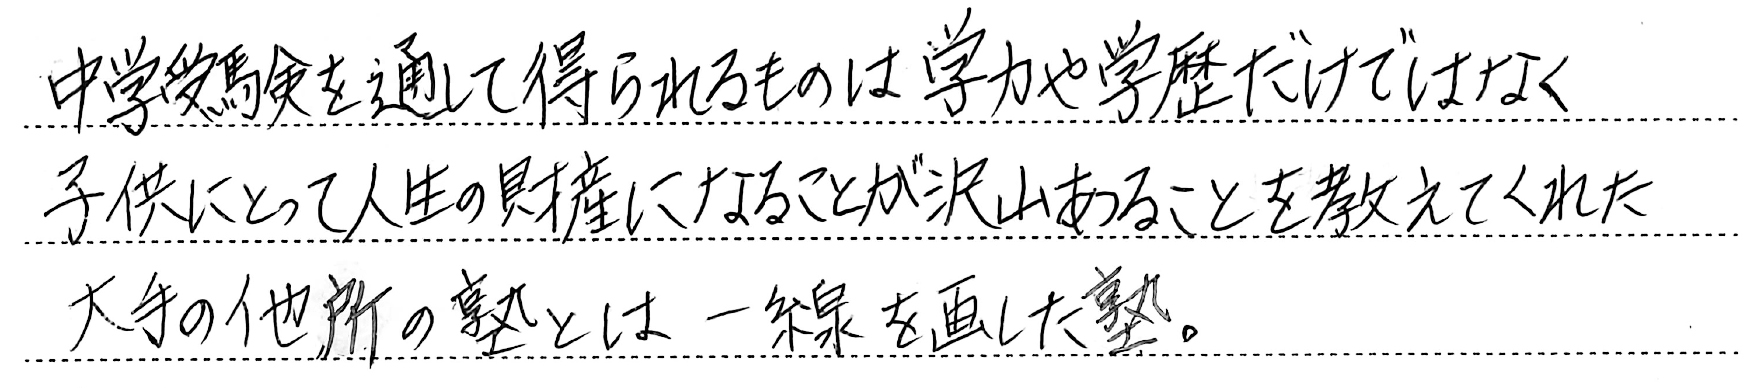 中学受験を通して得られるものは学力や学歴だけではなく
子供にとって人生の財産になることが沢山あることを教えてくれた
大手の他所の塾とは一線を画した塾。